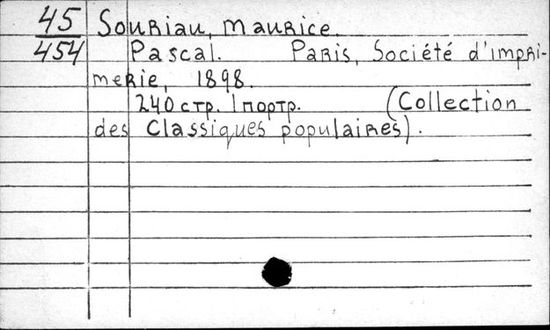 45 Souriau, Maurice.
454 Pascal. Paris, Société d'impri-
merie, 1898.
240 стр. 1 портр. (Collection
des Classiques populaires).